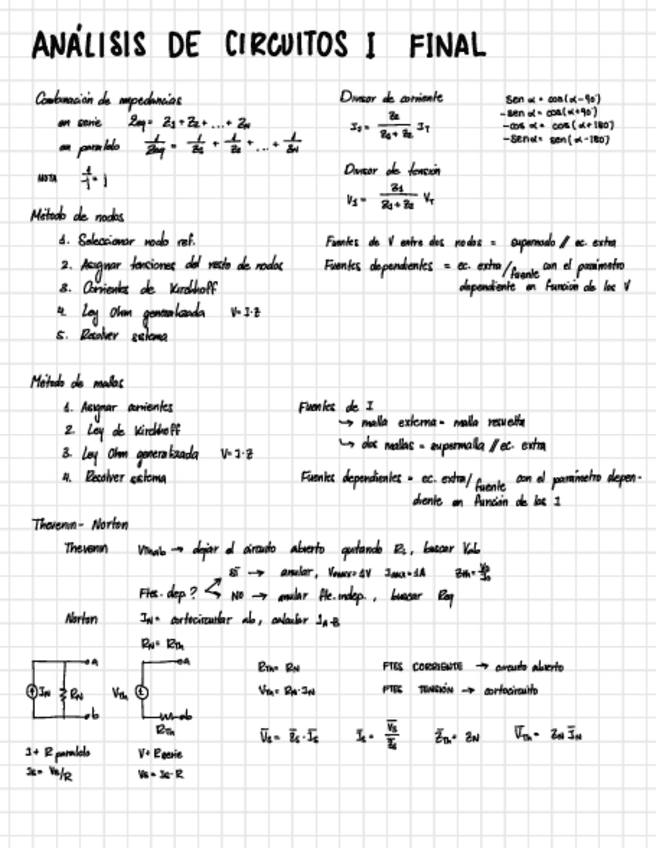 ANÁLISIS DE CIRCUITOS I FINAL
Combinación de impedancias
en serie Zeq = Z1 + Z2 + ... + ZN
en paralelo 1/Zeq = 1/Z1 + 1/Z2 + ... + 1/ZN
NOTA
Divisor de corriente
I1 = Z2/(Z1 + Z2) IT
Divisor de tensión
V1 = Z1/(Z1 + Z2) VT
sen α = cos(α-90°)
-sen α = cos(α+90°)
-cos α = cos(α+180°)
-sen α = sen(α-180°)
Método de nodos
1. Seleccionar nodo ref.
2. Asignar tensiones del resto de nodos
3. Corrientes de Kirchhoff
4. Ley Ohm generalizada V=I·Z
5. Resolver sistema
Fuentes de V entre dos nodos = supernodo // ec. extra
Fuentes dependientes = ec. extra/fuente con el parámetro
dependiente en función de los V
Método de mallas
1. Asignar corrientes
2. Ley de Kirchhoff
3. Ley Ohm generalizada V=I·Z
4. Resolver sistema
Fuentes de I
↳ malla externa = malla resuelta
↳ dos mallas = supermalla // ec. extra
Fuentes dependientes = ec. extra/fuente con el parámetro depen-
diente en función de las I
Thevenin - Norton
Thevenin → dejar el circuito abierto quitando RL, buscar Vab
Ftes. dep?
SÍ → anular, Vaux=1V Iaux=1A Zth=V0/I0
NO → anular fte. indep., buscar Req
Norton IN = cortocircuitar ab, calcular IA-B
RN = RTh
a
IN
RN
b
a
VTh
b
RTh
RTh = RN
VTh = RN·IN
FTES CORRIENTE → circuito abierto
FTES TENSIÓN → cortocircuito
V̅s = Z̅s·I̅s
I̅s = V̅s/Z̅s
Z̅Th = ZN
V̅Th = ZN I̅N
I + R paralelo
Is = Vs/R
V + R serie
Vs = Is·R